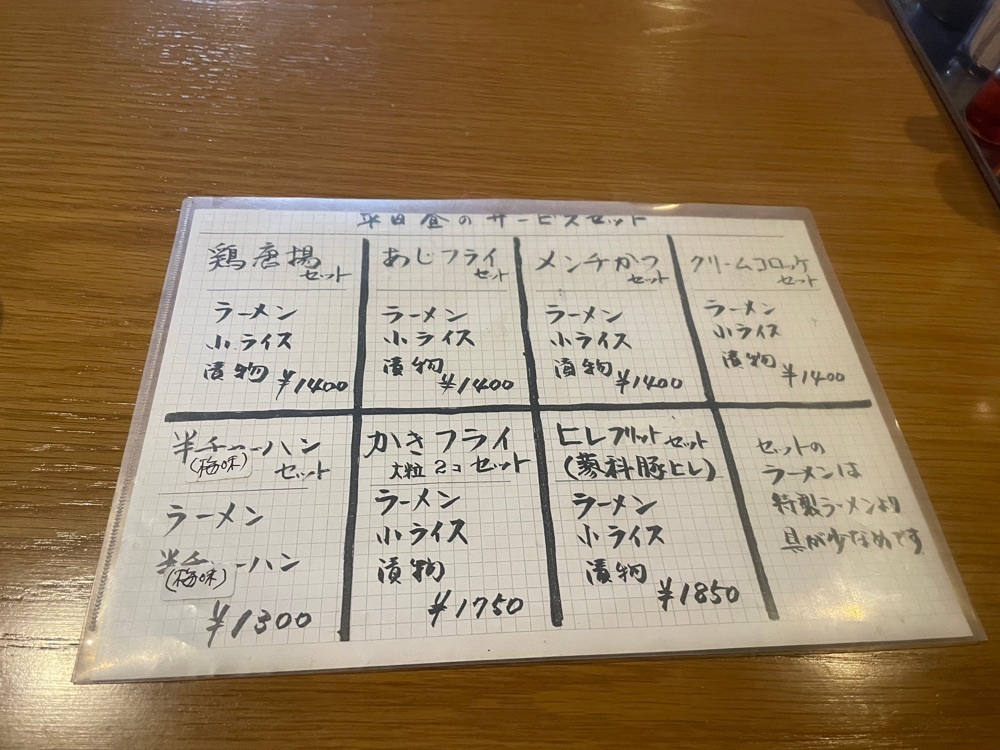 平日昼のサービスセット
鶏唐揚
セット
ラーメン
小ライス
漬物
¥1400
あじフライ
セット
ラーメン
小ライス
漬物
¥1400
メンチかつ
セット
ラーメン
小ライス
漬物
¥1400
クリームコロッケ
セット
ラーメン
小ライス
漬物
¥1400
半チャーハン
(梅味)
セット
ラーメン
半チャーハン
(梅味)
¥1300
かきフライ
大粒2コ セット
ラーメン
小ライス
漬物
¥1750
ヒレフリットセット
(蓼科豚ヒレ)
ラーメン
小ライス
漬物
¥1850
セットの
ラーメンは
特製ラーメンより
具が少なめです